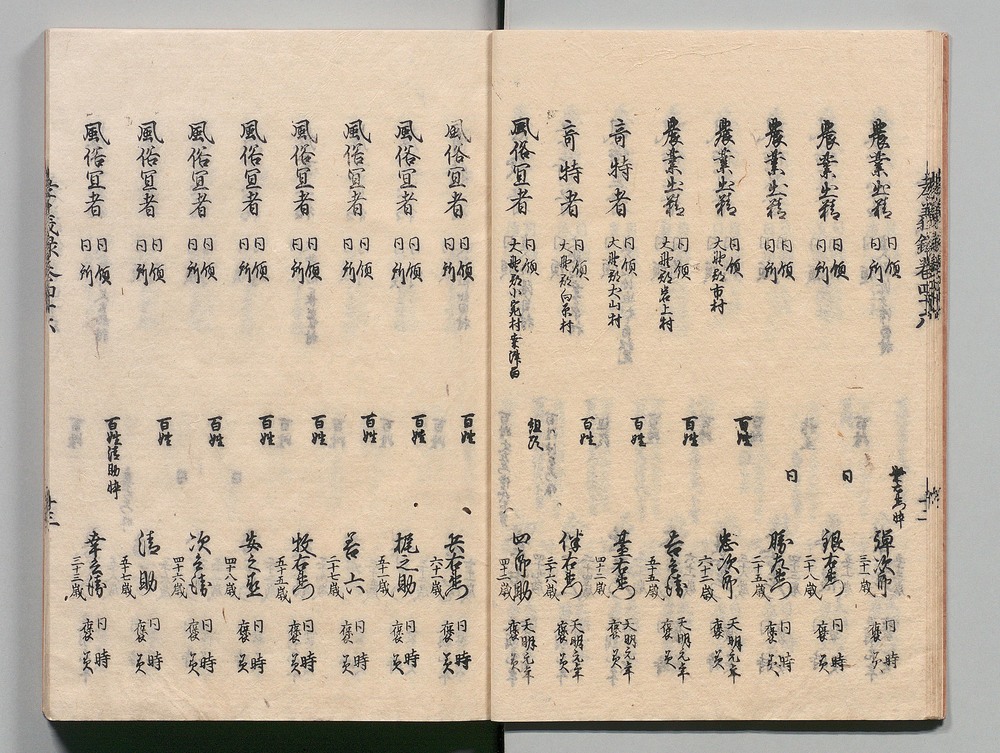 農業出精 同領 同所 彈次郎 三十一歳 同時褒美
農業出精 同領 同所 同 銀右衛門 二十八歳 同時褒美
農業出精 同領 同所 同 勝左衛門 二十五歳 同時褒美
農業出精 同領 大野郡市村 百姓 忠次郎 六十二歳 天明元年褒美
農業出精 同領 大野郡岩上村 百姓 吉兵衛 五十五歳 天明元年褒美
奇特者 同領 大野郡大山村 百姓 甚右衛門 四十二歳 天明元年褒美
奇特者 同領 大野郡向原村 百姓 伴右衛門 三十六歳 天明元年褒美
風俗宜者 同領 大野郡小宛村 組頭 四郎助 四十三歳 天明元年褒美
風俗宜者 同領 同所 百姓 兵右衛門 六十一歳 同時褒美
風俗宜者 同領 同所 百姓 梶之助 五十一歳 同時褒美
風俗宜者 同領 同所 百姓 若六 二十七歳 同時褒美
風俗宜者 同領 同所 百姓 牧右衛門 五十五歳 同時褒美
風俗宜者 同領 同所 百姓 安之丞 四十八歳 同時褒美
風俗宜者 同領 同所 百姓 次兵衛 四十六歳 同時褒美
風俗宜者 同領 同所 百姓 清助 五十七歳 同時褒美
風俗宜者 同領 同所 百姓清助悴 幸兵衛 三十三歳 同時褒美